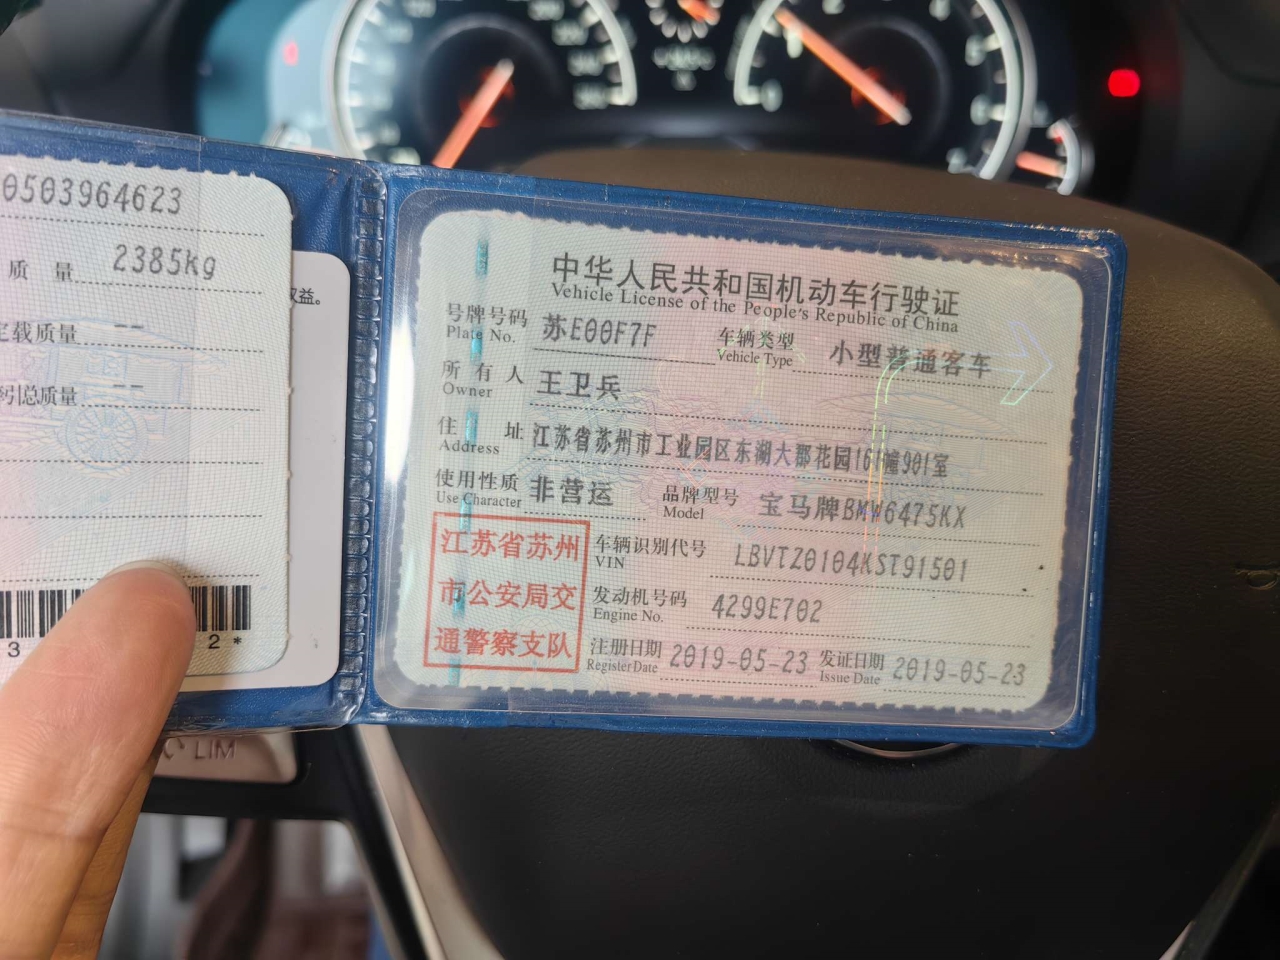 0503964623
质 量 2385kg
载质量 --
总质量 --
权益。
3
2*
LIM
中华人民共和国机动车行驶证
Vehicle License of the People's Republic of China
号牌号码 苏E00F7F 车辆类型 小型普通客车
Plate No. Vehicle Type
所有人 王卫兵
Owner
住 址 江苏省苏州市工业园区东湖大郡花园16幢901室
Address
使用性质 非营运 品牌型号 宝马牌BMW6475KX
Use Character Model
江苏省苏州
市公安局交
通警察支队
车辆识别代号 LBVTZ0104KST91501
VIN
发动机号码 4299E702
Engine No.
注册日期 2019-05-23 发证日期 2019-05-23
Register Date Issue Date